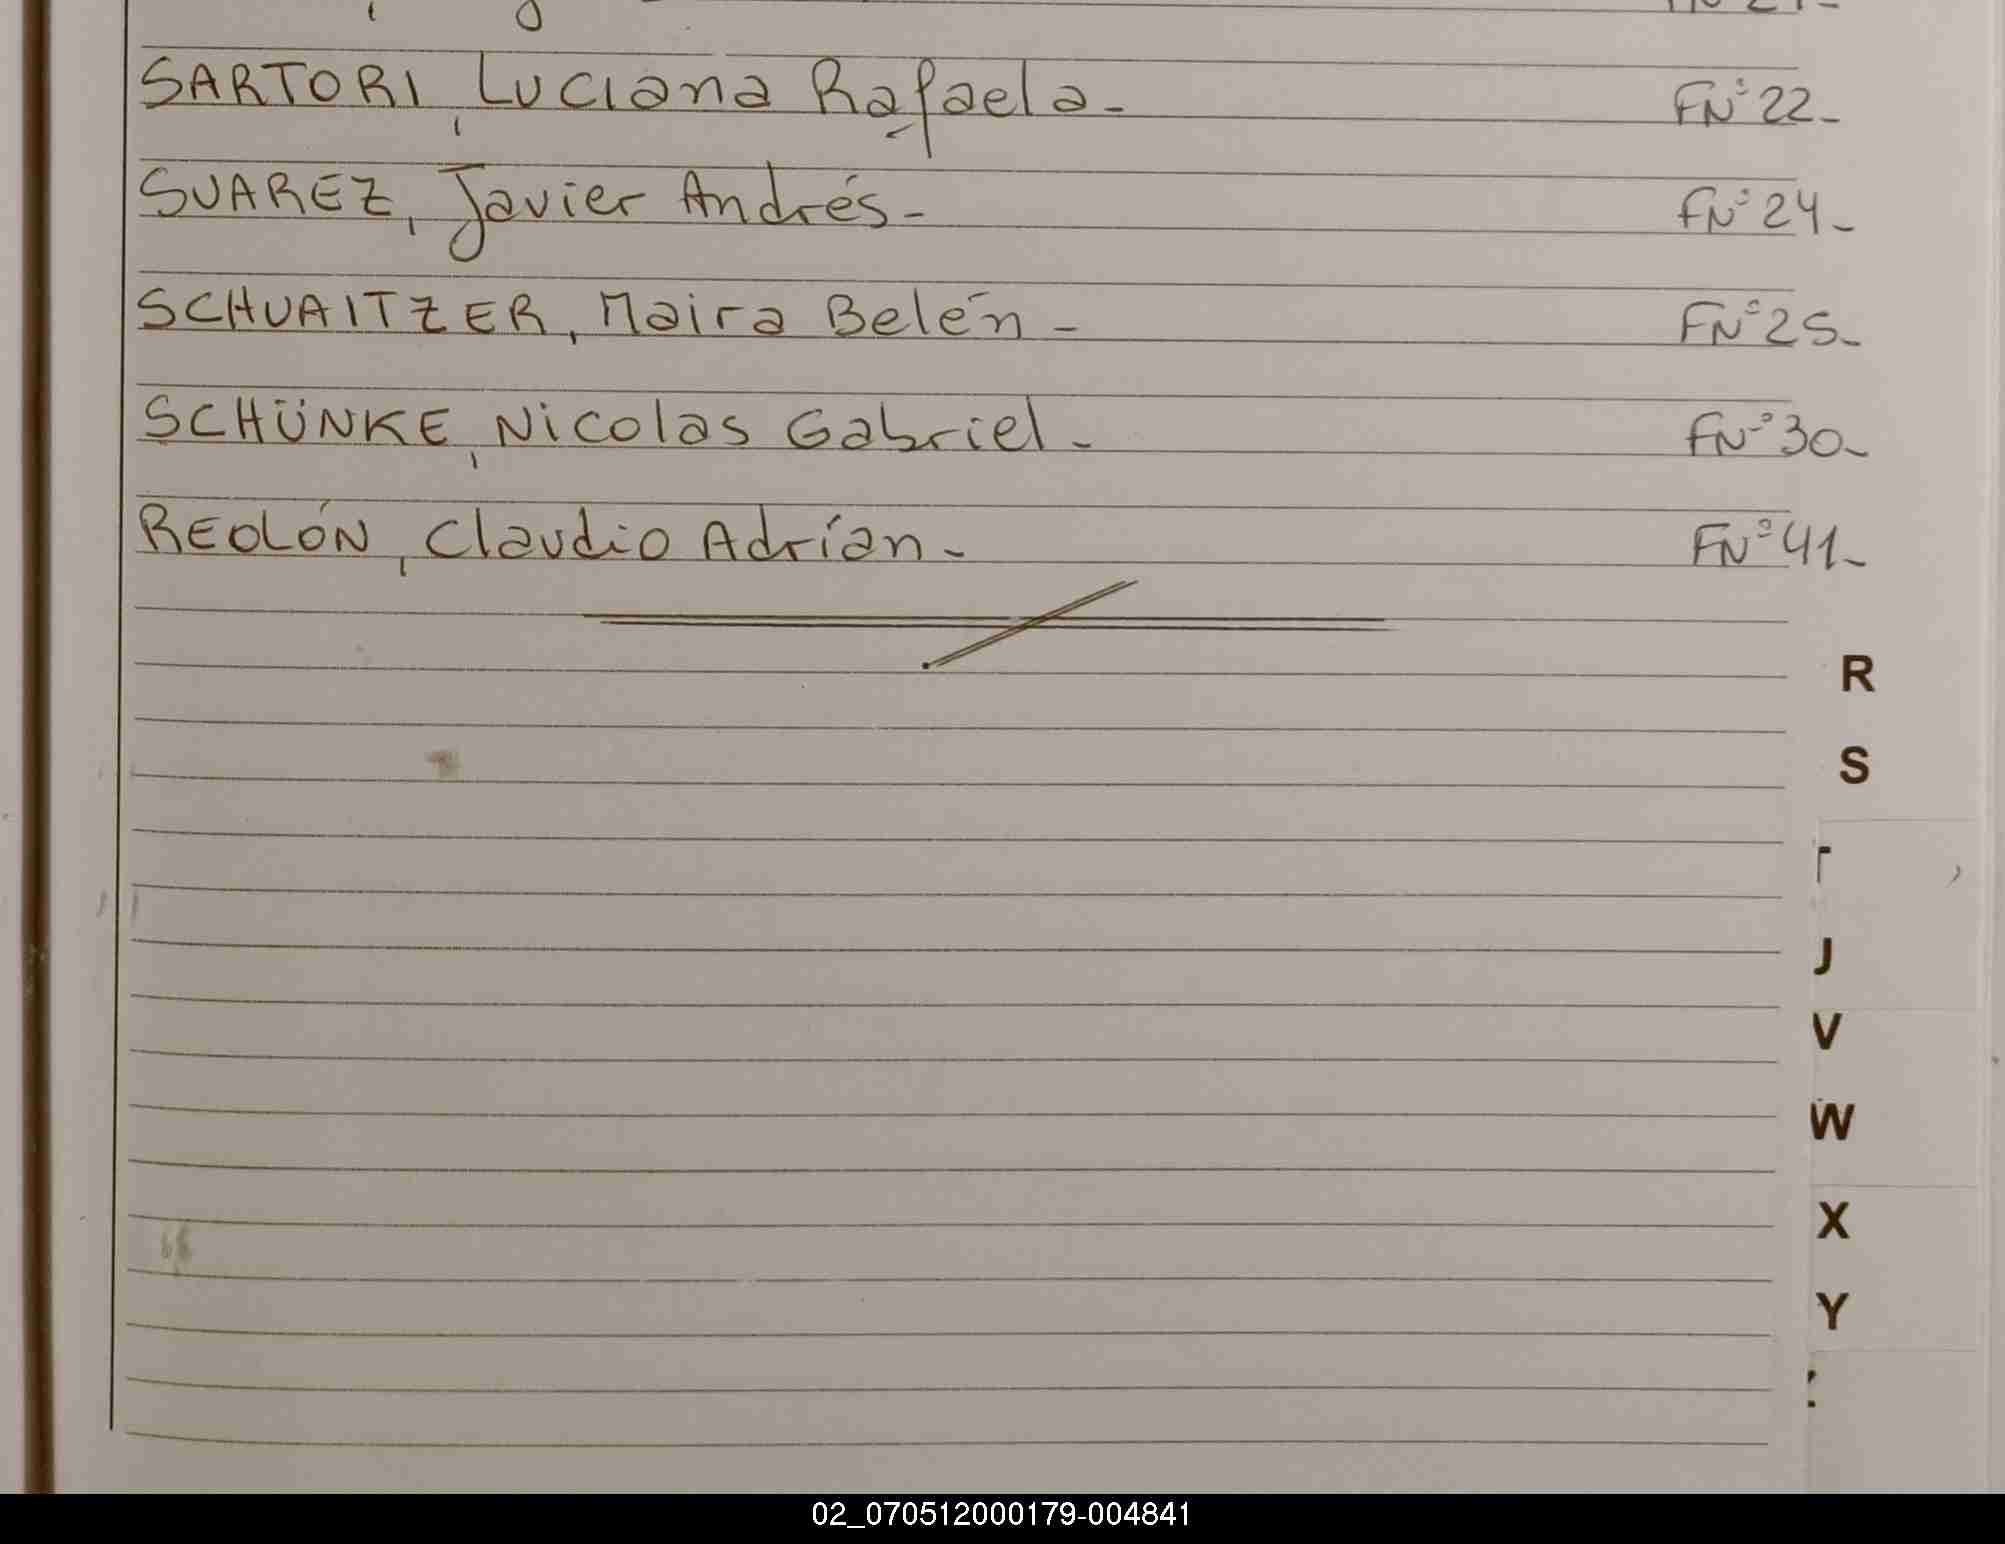 SARTORI, Luciana Rafaela- FNº22-
SUAREZ, Javier Andrés- FNº24-
SCHUAITZER, Maira Belén- FNº25-
SCHÜNKE, Nicolas Gabriel- FNº30-
REOLÓN, Claudio Adrían- FNº41-
R
S
T
J
V
W
X
Y
02_070512000179-004841